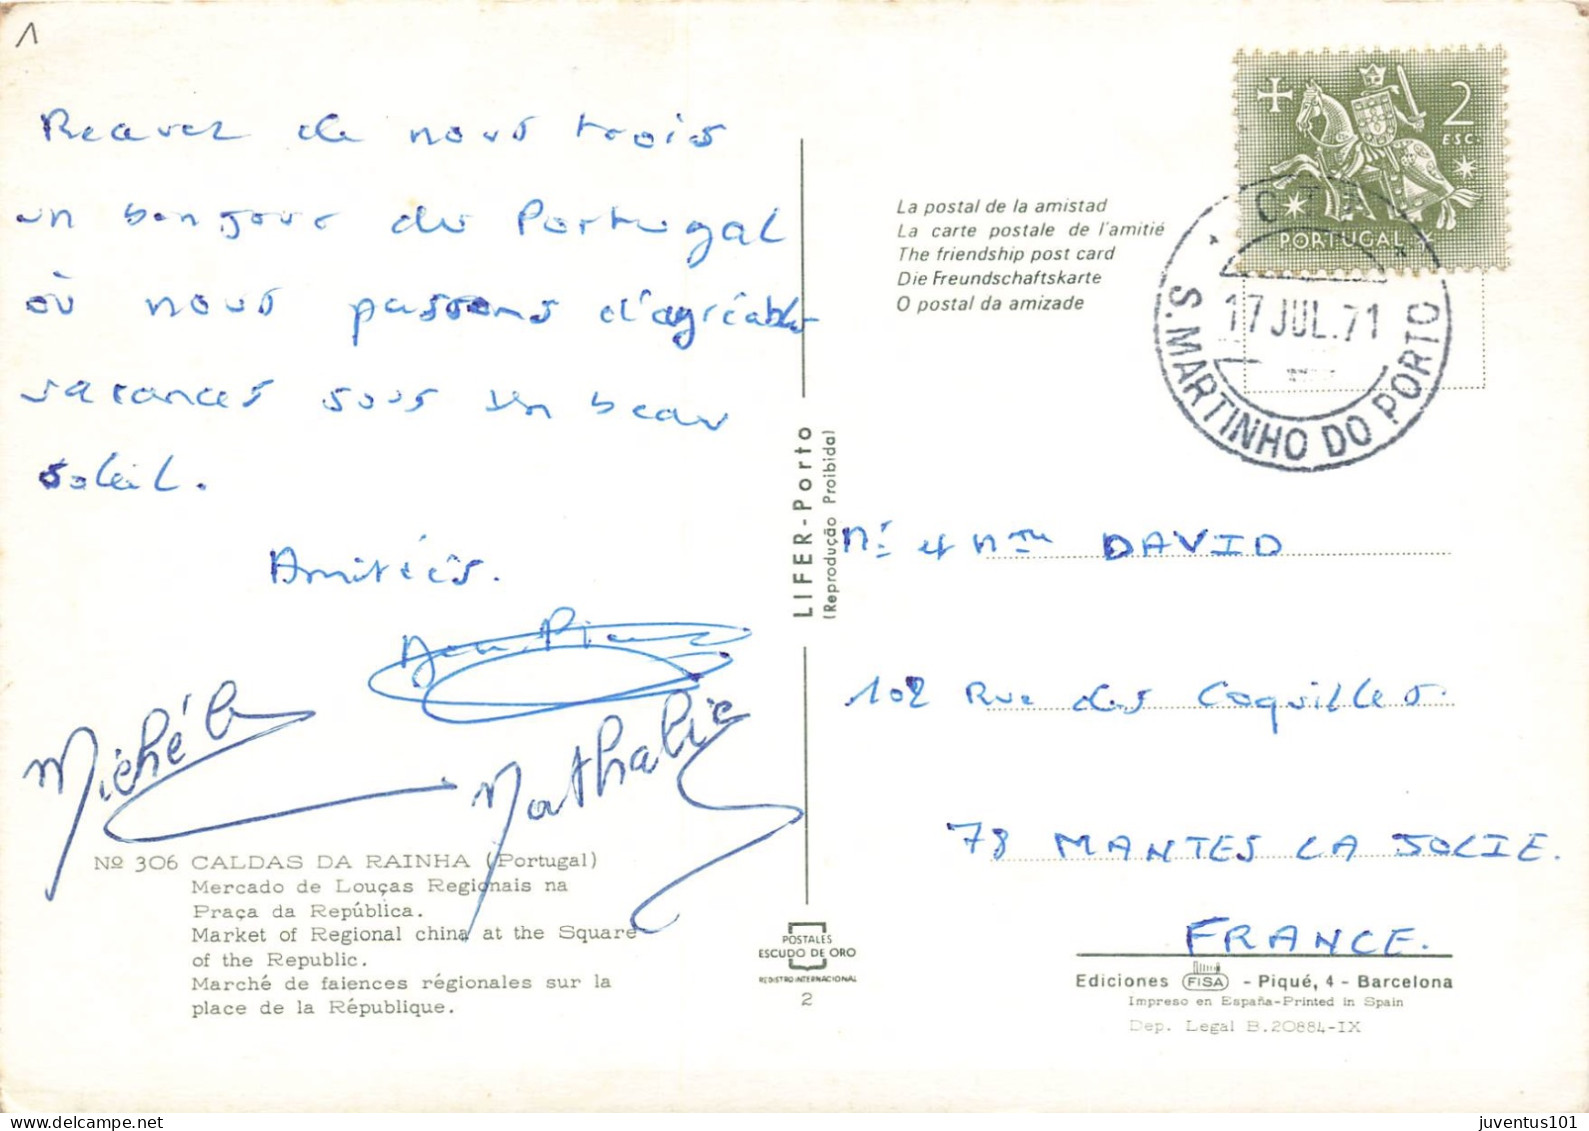 1
Recevez de nous trois
un bonjour du Portugal
où nous passons d'agréables
vacances sous un beau
soleil.
Amitiés.
Michéle
Nathalie
Nº 306 CALDAS DA RAINHA (Portugal)
Mercado de Louças Regionais na
Praça da República.
Market of Regional china at the Square
of the Republic.
Marché de faiences régionales sur la
place de la République.
LIFER - Porto
(Reprodução Proibida)
POSTALES
ESCUDO DE ORO
REGISTRO INTERNACIONAL
2
La postal de la amistad
La carte postale de l'amitié
The friendship post card
Die Freundschaftskarte
O postal da amizade
2
ESC.
PORTUGAL
17 JUL. 71
S. MARTINHO DO PORTO
Mr et Mme DAVID
102 Rue des Coquilles.
78 MANTES LA JOLIE.
FRANCE.
Ediciones FISA - Piqué, 4 - Barcelona
Impreso en España-Printed in Spain
Dep. Legal B.20884-IX
juventus101